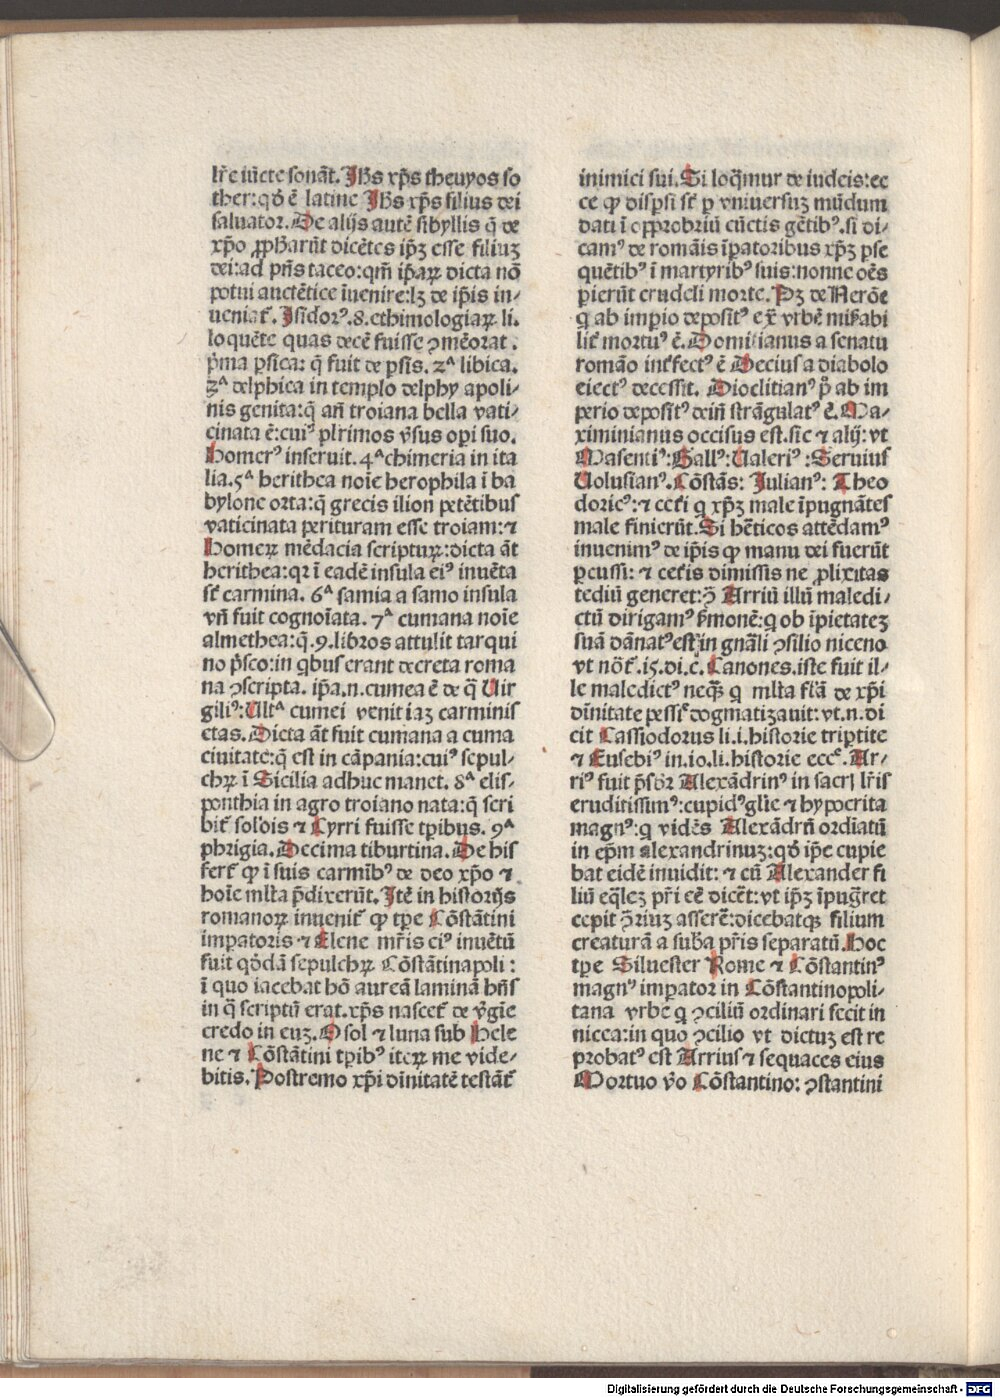 lr̃e iũcte sonãt. Jh̃s xp̃s theuyos so
ther: qd̕ ẽ latine Jh̃s xp̃s filius dei
saluator. De alijs autẽ sibyllis q̃ de
xp̃o ꝓph̃arũt dicẽtes ip̃ꝫ esse filiuꝫ
dei: ad pñs taceo: qm̃ ip̃aꝝ dicta nõ
potui auctẽtice ĩuenire: lꝫ de ip̃is in⸗
ueniat̃. Isidorꝰ .8. ethimologiaꝝ li.
loquẽte quas decẽ fuisse ꝯmẽorat.
p̃ma ꝑsica: q̃ fuit de ꝑsis. 2ᵃ libica.
3ᵃ delphica in templo delphy apoli⸗
nis genita: q̃ añ troiana bella vati⸗
cinata ẽ: cuiꝰ pl̃rimos v̕sus oꝑi suo.
Homerꝰ inseruit. 4ᵃ chimeria in ita
lia. 5ᵃ herithea noĩe herophila ĩ ba
bylone orta: q̃ grecis ilion petẽtibus
vaticinata perituram esse troiam: ⁊
Homeꝝ mẽdacia scripturꝝ: dicta ãt
herithea: qꝛ ĩ eadẽ insula eiꝰ inuẽta
st̃ carmina. 6ᵃ samia a samo insula
vñ fuit cognoĩata. 7ᵃ cumana noĩe
almethea: q̃ .9. libros attulit tarqui
no p̃sco: in qbus erant decreta roma
na ꝯscripta. ip̃a .n. cumea ẽ de q̃ Uir
giliꝰ: Ultᵃ cumei venit iaꝫ carminis
etas. Dicta ãt fuit cumana a cuma
ciuitate: q̃ est in cãpania: cuiꝰ sepul⸗
chꝝ ĩ Sicilia adhuc manet. 8ᵃ elis⸗
ponthia in agro troiano nata: q̃ scri
bit̃ solois ⁊ Cyrri fuisse tꝑibus. 9ᵃ
phrigia. Decima tiburtina. De his
fert̃ ꝙ ĩ suis carmĩbꝰ de deo xp̃o ⁊
hoĩe ml̃ta p̃dixerũt. Itẽ in historijs
romanoꝝ inuenit̃ ꝙ tꝑe Cõstãtini
imꝑatoris ⁊ Elene mr̃is eiꝰ inuẽtũ
fuit qd̕dã sepulchꝝ Cõstãtinapoli:
ĩ quo iacebat hõ aureã laminã hñs
in q̃ scriptũ erat. xp̃s nascet̃ de v̕gĩe
credo in euꝫ. O sol ⁊ luna sub Hele
ne ⁊ Cõstãtini tꝑibꝰ iteꝝ me vide⸗
bitis. Postremo xp̃i diĩnitatẽ testãt̃
inimici sui. Si loq̃mur de iudeis: ec
ce ꝙ disꝑsi st̃ ꝑ vniuersuꝫ mũdum
dati ĩ opprobriũ cũctis gẽtibꝰ. si di⸗
camꝰ de romãis ĩꝑatoribus xp̃ꝫ ꝑse
quẽtibꝰ ĩ martyribꝰ suis: nonne oẽs
ꝑierũt crudeli morte. Pꝫ de Nerõe
q ab imꝑio depositꝰ ex̃ vrbẽ mis̕abi
lit̃ mortuꝰ ẽ. Domitianus a senatu
romão int̕fectꝰ ẽ Decius a diabolo
eiectꝰ decessit. Dioclitianꝰ p̃ ab im
perio depositꝰ deiñ strãgulatꝰ ẽ. Ma⸗
ximinianus occisus est. sic ⁊ alij: vt
Masentiꝰ: Gallꝰ: Ualeriꝰ: Seruius
Uolusianꝰ. Cõstãs: Julianꝰ: Theo
doricꝰ: ⁊ cet̕i q xp̃ꝫ male ĩpugnãtes
male finierũt. Si h̕eticos attẽdamꝰ
inuenimꝰ de ip̃is ꝙ manu dei fuerũt
ꝑcussi: ⁊ cet̕is dimissis ne ꝓlixitas
tediũ generet: ꝯ̃ Arriũ illũ maledi⸗
ctũ dirigamꝰ s̕monẽ: q ob ĩpietateꝫ
suã dãnatꝰ est in gnãli ꝯsilio niceno
vt not̃ .15. di. c. Canones. iste fuit il⸗
le maledictꝰ neq̃ꝫ q ml̃ta fl̃ã de xp̃i
diĩnitate pessĩe dogmatizauit: vt .n. di
cit Cassiodorus li. i. historie triꝑtite
⁊ Eusebiꝰ in .io. li. historie ecc̃e. Ar⸗
riꝰ fuit p̃sbr̃ Alexãdrinꝰ in sacꝭ lr̃is
eruditissimꝰ: cupidꝰ gl̃ie ⁊ hypocrita
magnꝰ: q vidẽs Alexãdrũ ordĩatũ
in ep̃m alexandrinuꝫ: qd̕ ip̃e cupie
bat eidẽ inuidit: ⁊ cũ Alexander fi
liũ eq̃leꝫ pr̃i eẽ dicet̃: vt ip̃ꝫ ĩpug̕ret
cepit ꝯ̃riuꝫ asserẽ: dicebatqꝫ filium
creaturã a sub̃a pr̃is separatũ. Hoc
tꝑe Siluester Rome ⁊ Cõstantinꝰ
magnꝰ imꝑator in Cõstantinopoli⸗
tana vrbe q ꝯciliũ ordinari fecit in
nicea: in quo ꝯcilio vt dictuꝫ est re
probatꝰ est Arrius ⁊ sequaces eius
Mortuo v̕o Cõstantino: ꝯstantini
Digitalisierung gefördert durch die Deutsche Forschungsgemeinschaft - DFG